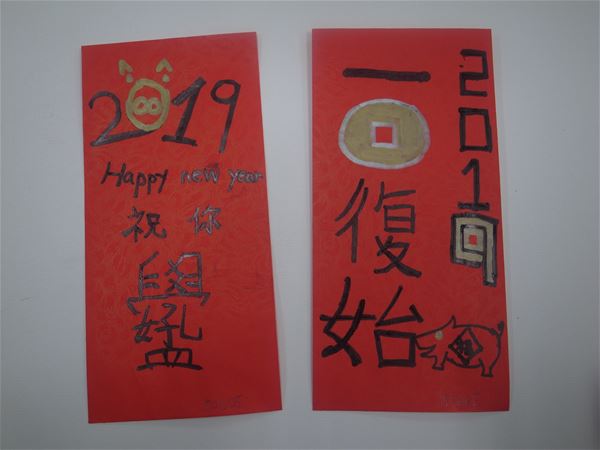 2019
Happy new year
祝你
2019
一復始